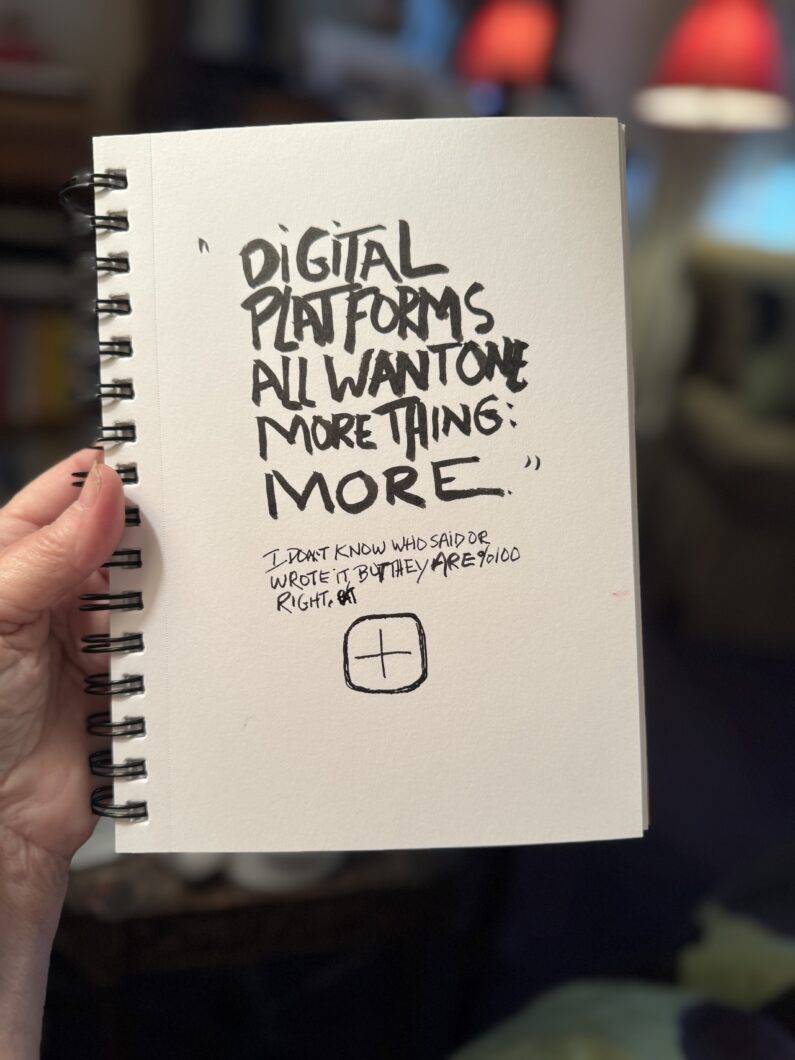 "DiGiTAL
PLATFORMS
ALL WANT ONE
MORE THING:
MORE."
I DON'T KNOW WHO SAiD OR
WROTE iT, BUT THEY ARE %100
RIGHT.